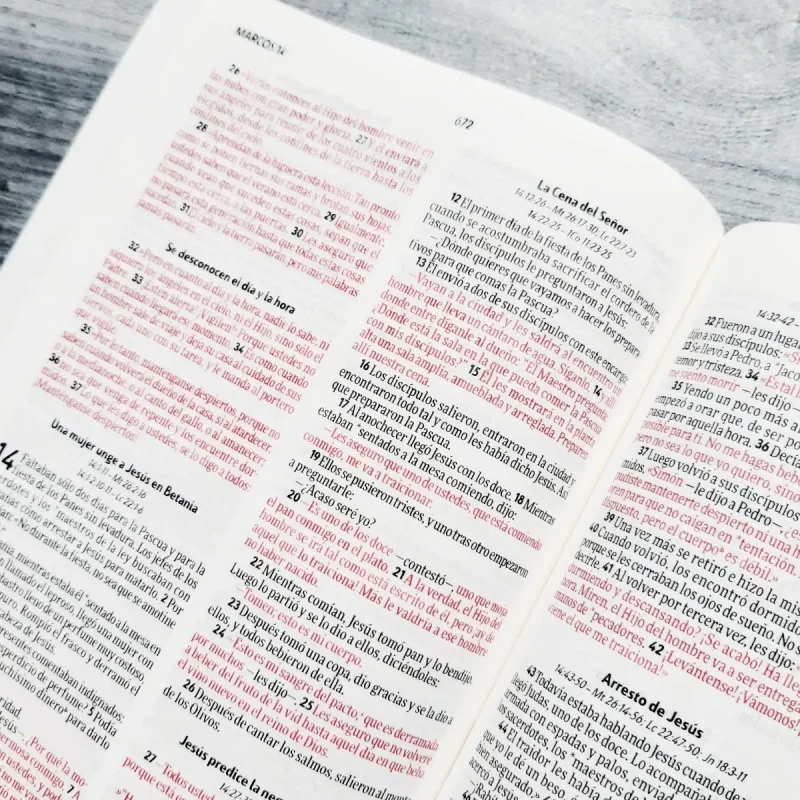 MARCOS 14
672
26 Verán entonces al Hijo del hombre venir en
las nubes con gran poder y gloria. 27 Y él enviará a
sus ángeles para reunir de los cuatro vientos a los
elegidos, desde los confines de la tierra hasta los
confines del cielo.
28 »Aprendan de la higuera esta lección: Tan pronto
como se ponen tiernas sus ramas y brotan sus hojas,
ustedes saben que el verano está cerca. 29 Igualmente,
cuando vean que suceden estas cosas, sepan que el
tiempo está cerca, a las puertas. 30 Les aseguro que
no pasará esta generación hasta que todas estas cosas
sucedan. 31 El cielo y la tierra pasarán, pero mis palabras
jamás pasarán.
Se desconocen el día y la hora
32 »Pero en cuanto al día y la hora, nadie lo sabe, ni
siquiera los ángeles en el cielo, ni el Hijo, sino sólo el
Padre. 33 ¡Estén alerta! ¡Vigilen! Porque ustedes no
saben cuándo llegará ese momento. 34 Es como cuando
un hombre sale de viaje y deja su casa al cuidado de sus
siervos, cada uno con su tarea, y le manda al portero
que vigile.
35 »Por lo tanto, manténganse despiertos, porque no
saben cuándo volverá el dueño de la casa, si al atardecer,
o a la medianoche, o al canto del gallo, o al amanecer;
36 no sea que venga de repente y los encuentre dor-
midos. 37 Lo que les digo a ustedes, se lo digo a todos:
¡Manténganse despiertos!
Una mujer unge a Jesús en Betania
14:1-11 – Mt 26:2-16
14:1,2,10,11 – Lc 22:1-6
14 Faltaban sólo dos días para la Pascua y para la
fiesta de los Panes sin levadura. Los jefes de los
sacerdotes y los *maestros de la ley buscaban con
artimañas cómo arrestar a Jesús para matarlo. 2 Por
«No durante la fiesta, no sea que se amotine
mientras estaba él *sentado a la mesa en
llamado el leproso, llegó una mujer con
lleno de un perfume muy costoso,
Rompió el frasco y derramó el
cabeza de Jesús.
presentes comentaban indignados:
desperdicio de perfume? 5 Podía
muchísimo dinero* para darlo
Jesús—. ¿Por qué la mo-
hermosa conmigo.
La Cena del Señor
14:12-26 – Mt 26:17-30; Lc 22:7-23
14:22-25 – 1Co 11:23-25
12 El primer día de la fiesta de los Panes sin levadura,
cuando se acostumbraba sacrificar el cordero de la
Pascua, los discípulos le preguntaron a Jesús:
—¿Dónde quieres que vayamos a hacer los prepara-
tivos para que comas la Pascua?
13 Él envió a dos de sus discípulos con este encargo:
—Vayan a la ciudad y les saldrá al encuentro un
hombre que lleva un cántaro de agua. Síganlo, 14 y allí
donde entre díganle al dueño: "El Maestro pregunta:
¿Dónde está la sala en la que pueda comer la Pascua
con mis discípulos?" 15 Él les mostrará en la planta
alta una sala amplia, amueblada y arreglada. Preparen
allí nuestra cena.
16 Los discípulos salieron, entraron en la ciudad y
encontraron todo tal y como les había dicho Jesús. Así
que prepararon la Pascua.
17 Al anochecer llegó Jesús con los doce. 18 Mientras
estaban *sentados a la mesa comiendo, dijo:
—Les aseguro que uno de ustedes, que está comiendo
conmigo, me va a traicionar.
19 Ellos se pusieron tristes, y uno tras otro empezaron
a preguntarle:
—¿Acaso seré yo?
20 —Es uno de los doce —contestó—, uno que moja
el pan conmigo en el plato. 21 A la verdad, el Hijo del
hombre se irá tal como está escrito de él, pero ¡ay de
aquel que lo traiciona! Más le valdría a ese hombre
no haber nacido.
22 Mientras comían, Jesús tomó pan y lo bendijo.
Luego lo partió y se lo dio a ellos, diciéndoles:
—Tomen; esto es mi cuerpo.
23 Después tomó una copa, dio gracias y se la dio a
ellos, y todos bebieron de ella.
24 —Esto es mi sangre del pacto, que es derramada
por muchos —les dijo—. 25 Les aseguro que no volveré
a beber del fruto de la vid hasta aquel día en que beba
el vino nuevo en el reino de Dios.
26 Después de cantar los salmos, salieron al monte
de los Olivos.
Jesús predice la neg
27 —Todos ustedes
porque está es
14:32-42 –
32 Fueron a un lugar
dijo a sus discípulos: «Si
Se llevó a Pedro, a *Jaco
temor y tristeza. 34 «Es tal
me siento morir —les dijo—
35 Yendo un poco más a
empezó a orar que, de ser po
pasar por aquella hora. 36 Decía
posible para ti. No me hagas beb
pero no sea lo que yo quiero, sino
37 Luego volvió a sus discípulos
midos. «Simón —le dijo a Pedro—, ¿e
pudiste mantenerte despierto ni una h
oren para que no caigan en *tentación.
dispuesto, pero el cuerpo* es débil.»
39 Una vez más se retiró e hizo la mis
40 Cuando volvió, los encontró dormido
porque se les cerraban los ojos de sueño. No s
decirle. 41 Al volver por tercera vez, les dijo: «
durmiendo y descansando? ¡Se acabó! Ha lleg
hora. Miren, el Hijo del hombre va a ser entrega
manos de *pecadores. 42 ¡Levántense! ¡Vámonos!
viene el que me traiciona!»
Arresto de Jesús
14:43-50 – Mt 26:14-56; Lc 22:47-50; Jn 18:3-11
43 Todavía estaba hablando Jesús cuando de
llegó Judas, uno de los doce. Lo acompañaba
armada con espadas y palos, enviada
los sacerdotes, los *maestros de
44 El traidor les había d
que yo le dé un beso, é
bien asegurado.»
acercó a Jesús
—¡Rabí
46